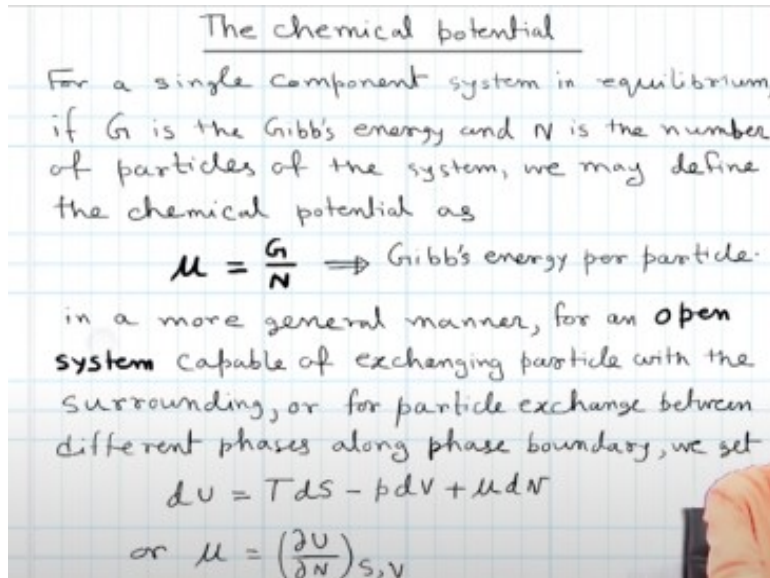 The chemical potential
For a single component system in equilibrium,
if G is the Gibb's energy and N is the number
of particles of the system, we may define
the chemical potential as
μ = G/N ⇒ Gibb's energy per particle.
in a more general manner, for an open
system capable of exchanging particle with the
surrounding, or for particle exchange between
different phases along phase boundary, we get
dU = TdS - pdV + μdN
or μ = (∂U/∂N)S,V